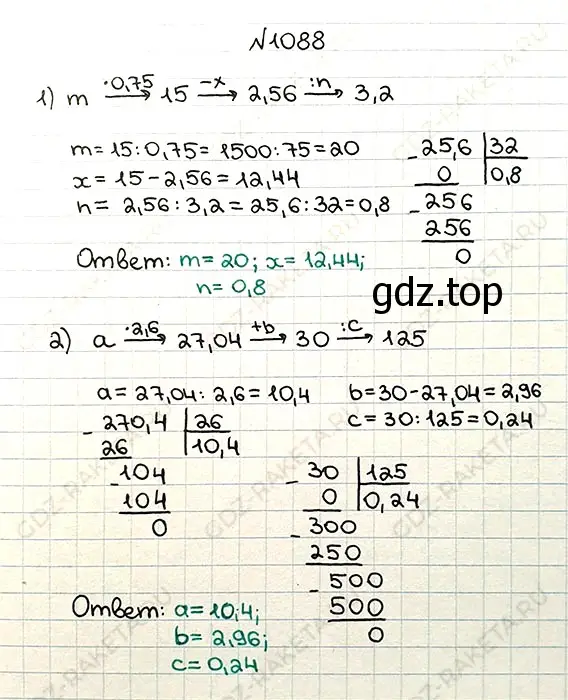 №1088
1) m ·0,75→ 15 –x→ 2,56 :n→ 3,2
m = 15 : 0,75 = 1500 : 75 = 20
x = 15 – 2,56 = 12,44
n = 2,56 : 3,2 = 25,6 : 32 = 0,8
– 25,6 | 32
0 | 0,8
– 256
256
0
Ответ: m = 20; x = 12,44;
n = 0,8
gdz.top
2) a ·2,6→ 27,04 +b→ 30 :c→ 125
a = 27,04 : 2,6 = 10,4
– 270,4 | 26
26 | 10,4
– 104
104
0
b = 30 – 27,04 = 2,96
c = 30 : 125 = 0,24
– 30 | 125
0 | 0,24
– 300
250
– 500
500
0
Ответ: a = 10,4;
b = 2,96;
c = 0,24
GDZ-RAKETA.RU